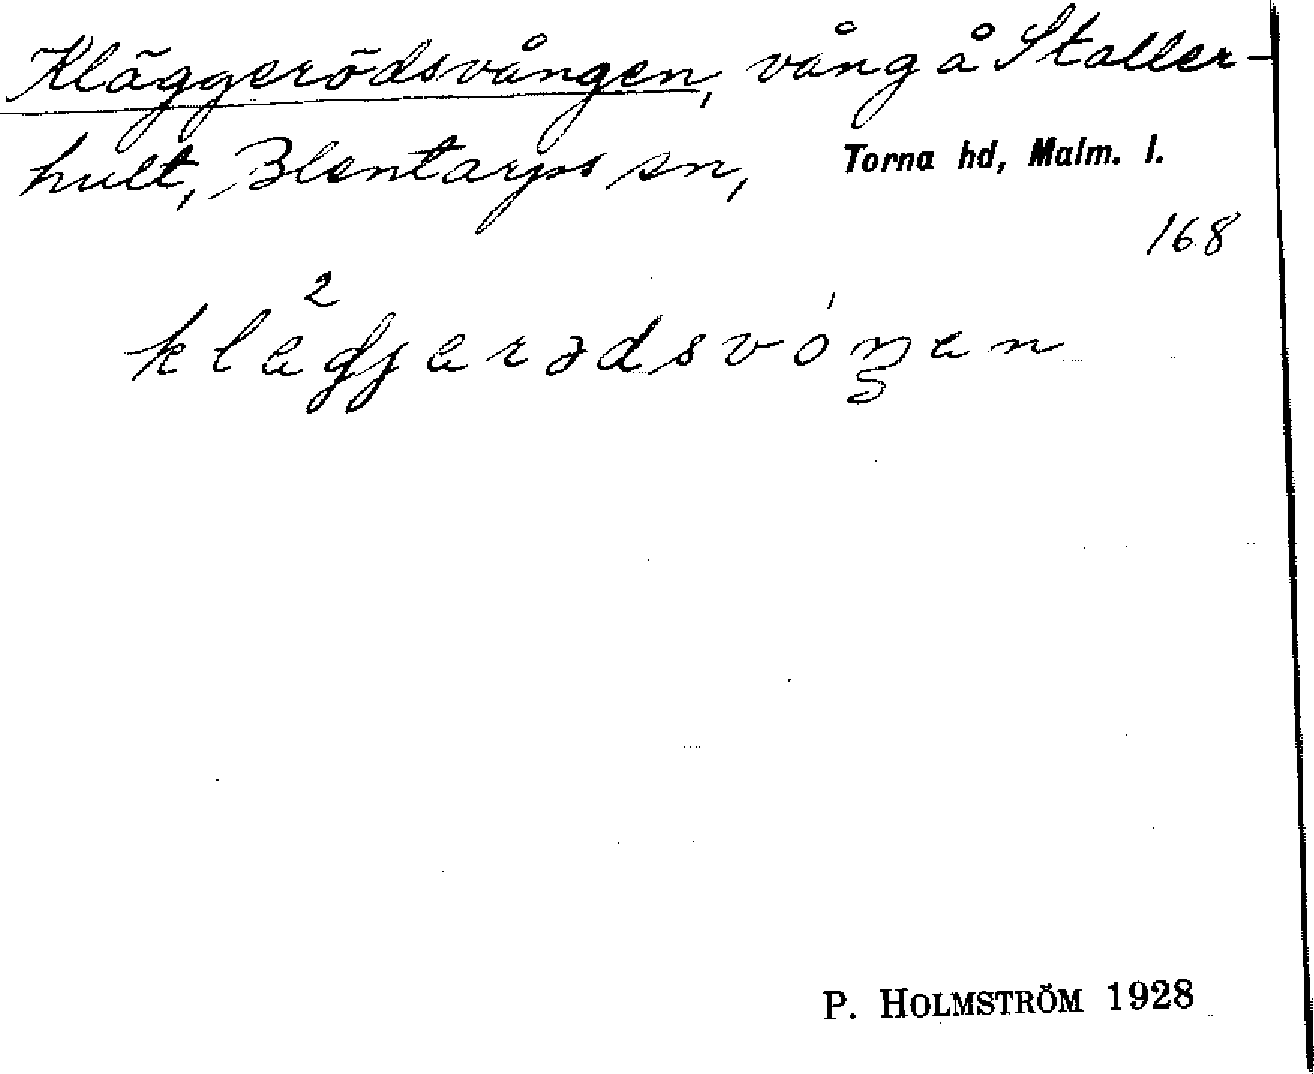 Kläggerödsvången, vång å Staller-
hult, Blentarps sn, Torna hd, Malm. l.
168
2
P. HOLMSTRÖM 1928